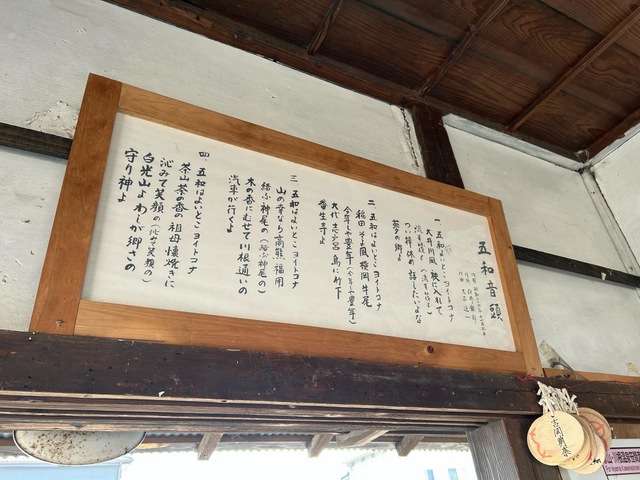 五和音頭
一、五和はよいとこヨイトコナ
大井川風 袂に入れて
つい梓休め 話したいよな
茶の郷よ
二、五和はよいとこヨイトコナ
稲田そよ風 横岡 牛尾
今年しや豊年(今年しや豊年)
大代 志戸呂 島に竹下
番生寺よ
三、五和はよいとこヨイトコナ
山の幸なら 高熊 福用
結ぶ神尾の(結ぶ神尾の)
木の香にむせて川根通いの
汽車が行くよ
四、五和はよいとこヨイトコナ
茶山茶の香の 祖母懐焼きに
沁みて笑顔の(沁みて笑顔の)
白光山よわしが郷さの
守り神よ